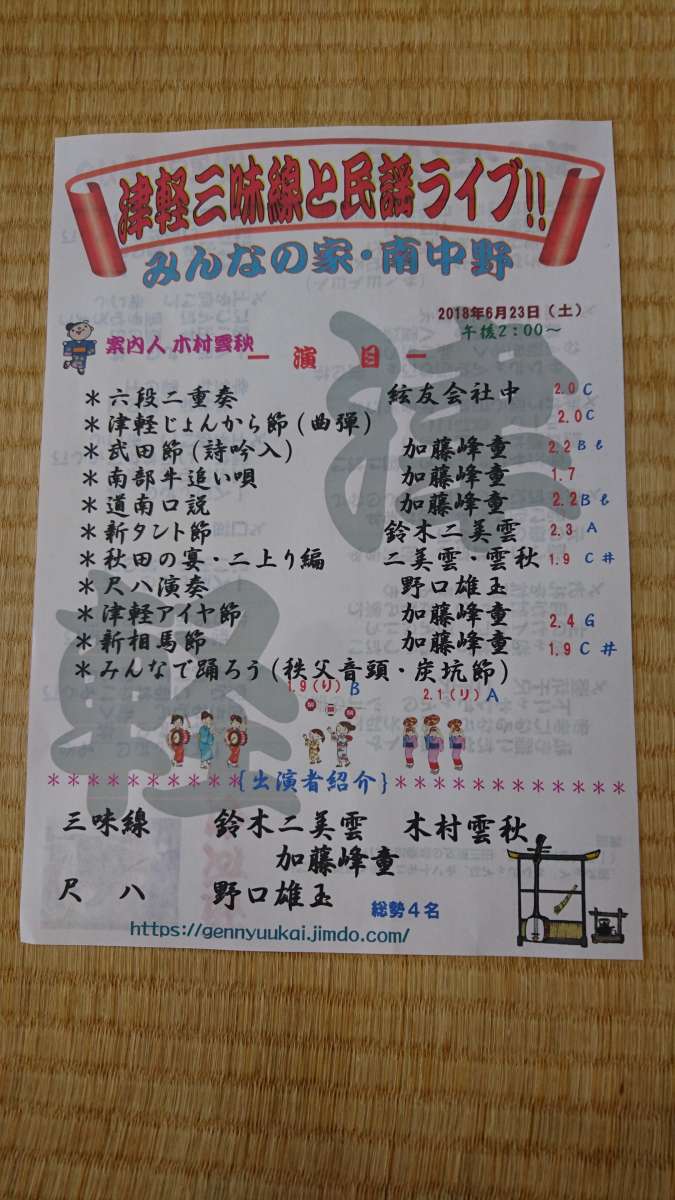 津軽三味線と民謡ライブ!!
みんなの家・南中野
2018年6月23日（土）
午後2：00～
案内人 木村雲秋
― 演 目 ―
＊六段二重奏 絃友会社中 2.0 C
＊津軽じょんから節（曲弾） 2.0 C
＊武田節（詩吟入） 加藤峰童 2.2 B♭
＊南部牛追い唄 加藤峰童 1.7
＊道南口説 加藤峰童 2.2 B♭
＊新タント節 鈴木二美雲 2.3 A
＊秋田の宴・二上り編 二美雲・雲秋 1.9 C＃
＊尺八演奏 野口雄玉
＊津軽アイヤ節 加藤峰童 2.4 G
＊新相馬節 加藤峰童 1.9 C＃
＊みんなで踊ろう（秩父音頭・炭坑節）
1.9（り）B 2.1（リ）A
津
軽
＊＊＊＊＊＊＊＊＊＊｛出演者紹介｝＊＊＊＊＊＊＊＊＊＊＊＊
三味線 鈴木二美雲 木村雲秋
加藤峰童
尺 八 野口雄玉 総勢４名
https://gennyuukai.jimdo.com/